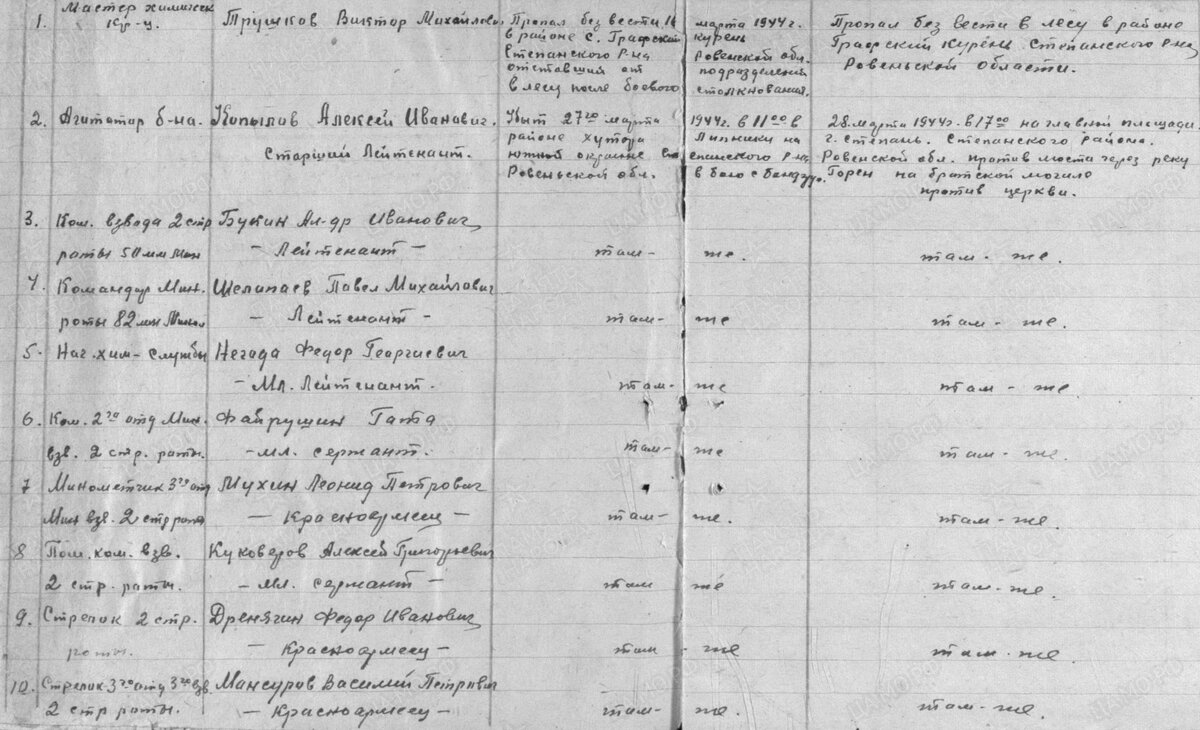 1. Мастер химическ Трушков Виктор Михайлович Пропал без вести 16 марта 1944 г. Пропал без вести в лесу в районе
кр-у. в районе с. Графский курень Графский Курень Степанского Р-на
Степанского Р-на Ровенской обл. Ровеньской области.
отставший от подразделения
в лесу после боевого столкновения.
2. Агитатор б-на. Копылов Алексей Иванович. Убит 27го марта 1944г. в 11 00 в 28 марта 1944г. в 17 00 на главной площади
Старший Лейтенант. районе хутора Липники на г. Степань. Степанского района.
южной окраине Степанского Р-на Ровенской обл. против моста через реку
Ровеньской обл. в бою с бандуро. Горен на братской могиле
против церкви.
3. Ком. взвода 2 стр Букин Ал-др Иванович
роты 50 мм Мин — Лейтенант — там- же. там- же.
4. Командир Мин. Шелипаев Павел Михайлович
роты 82 мм Мином — Лейтенант — там- же там- же.
5. Нач. хим- службы Негода Федор Георгиевич
— Мл. Лейтенант. там- же там - же
6. Ком. 2го отд Мин. Файрушин Гата
взв. 2 стр. роты. -мл. сержант. там- же там - же.
7 Минометчик 3го отд Мухин Леонид Петрович
Мин взв. 2 стр роты — Красноармеец — там- же. там-же.
8 Пом. ком. взв. Куковеров Алексей Григорьевич
2 стр. роты. — мл. сержант — там же там-же.
9. Стрелок 2 стр. Дренягин Федор Иванович
роты. — Красноармеец — там - же там-же.
10. Стрелок 3го отд 3го взв Мансуров Василий Петрович
2 стр роты. — Красноармеец — там- же. там-же.
ЦАМО.РФ